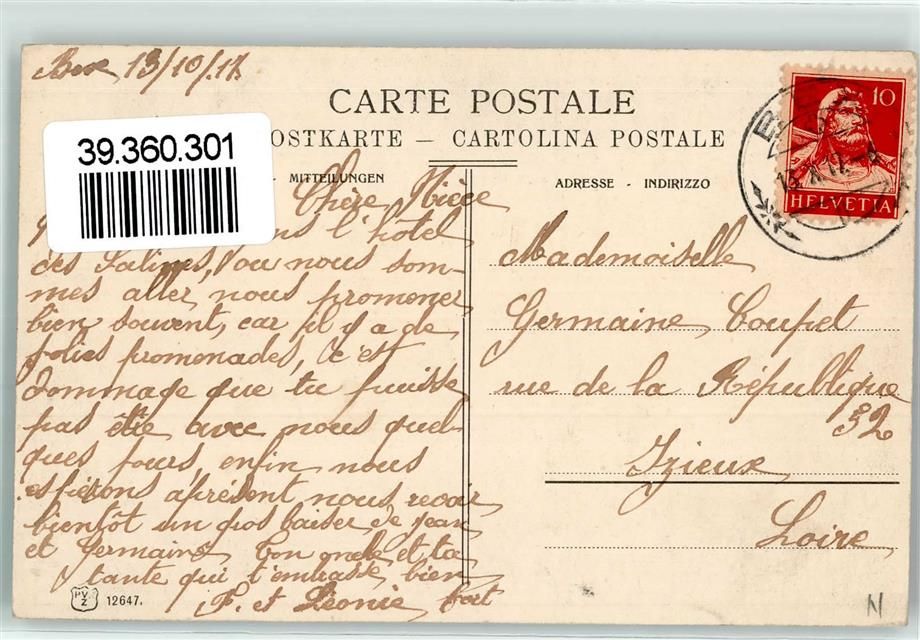 Bex 13/10/17.
CARTE POSTALE
POSTKARTE — CARTOLINA POSTALE
39.360.301
MITTEILUNGEN
ADRESSE - INDIRIZZO
10
HELVETIA
Chère Nièce
l'hotel
des Salines, ou nous som-
mes aller nous promener
bien souvent, car il y a de
jolies promenades, c'est
dommage que tu puisse
pas être avec nous quel-
ques jours, enfin nous
espérons aprèsent nous revoir
bientôt un gros baiser de Jean
et Germaine, ton oncle et ta
tante qui t'embrasse bien
F. et Léonie fort
Mademoiselle
Germaine Coupet
rue de la République
32
Izieux
Loire
PVZ 12647.
N